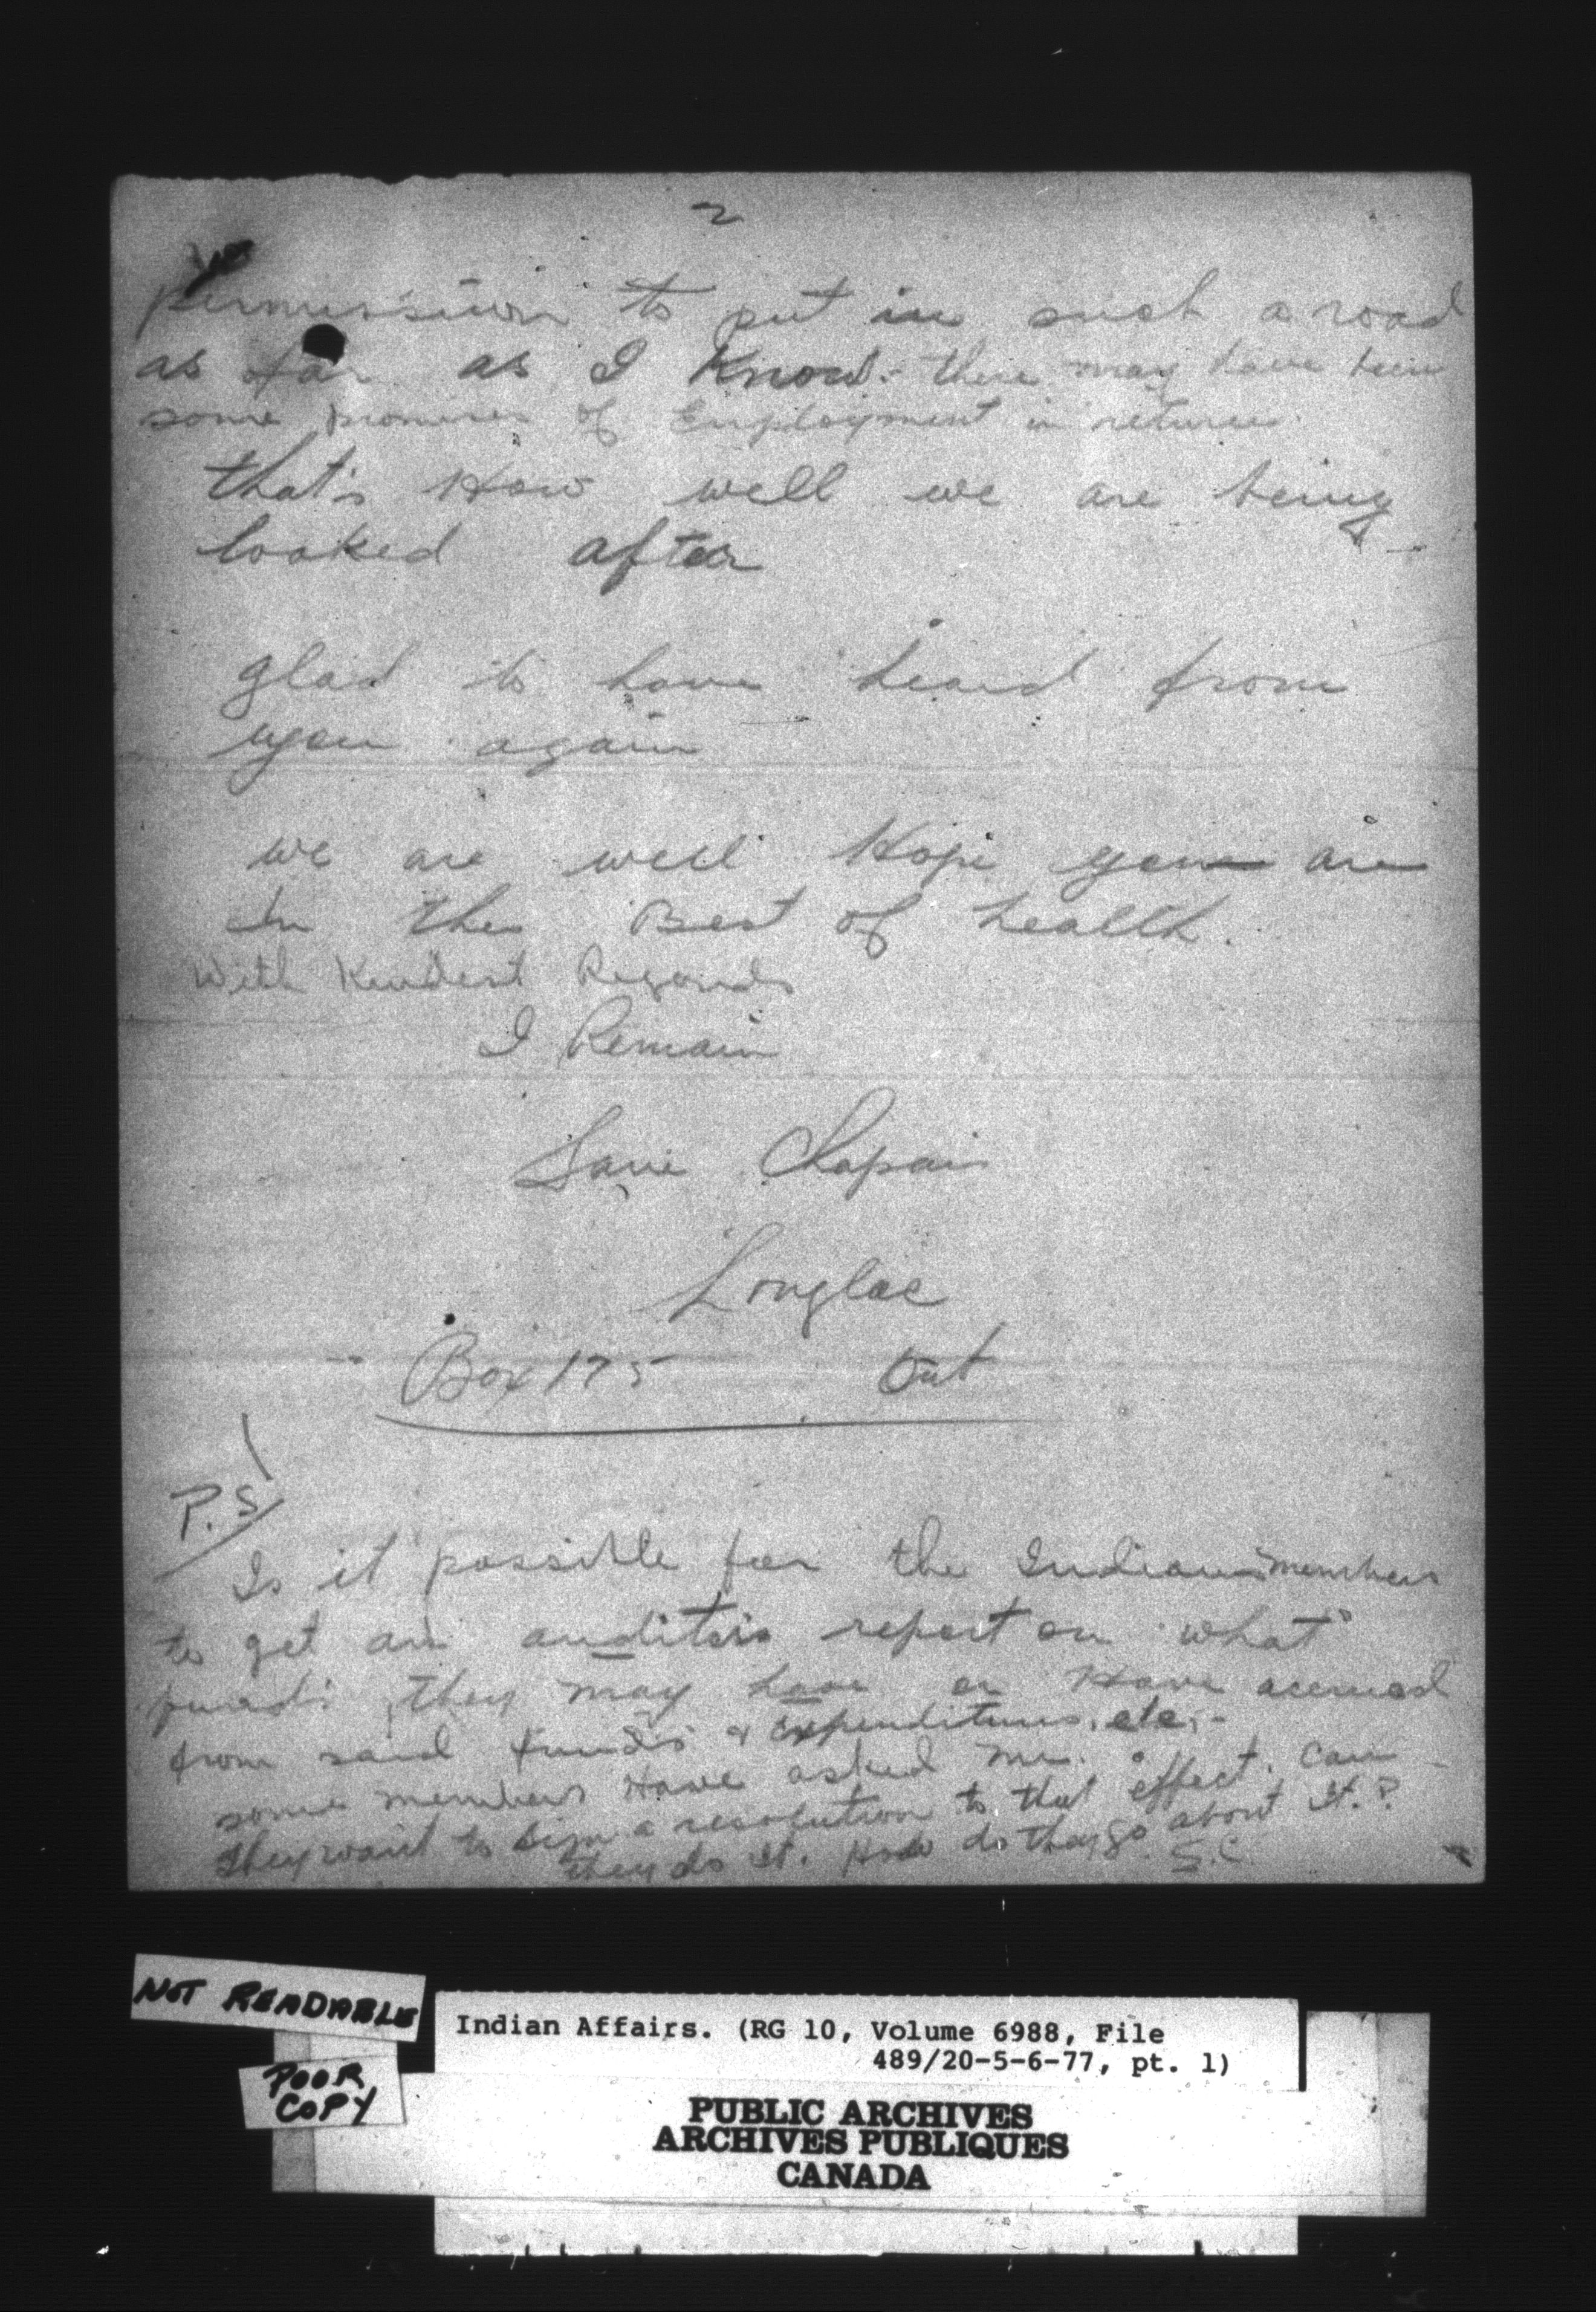 2
permission to put in such a road
as far as I Know. there may have been
some promises of Employment in return.
that's How well we are being
looked after
glad to have heard from
you again
we are well Hope you are
In the Best of health.
With Kindest Regards
I Remain
Chapais
Longlac
Box 175 Ont
P.S/
Is it possible for the Indian members
to get an auditors report on what
funds they may have or Have accrued
from said funds & Expenditures, etc.-
some members Have asked me.
they want to sign a resolution to that effect. Can
they do it. How do they go about It.?
S.C.
NOT READABLE
POOR
COPY
Indian Affairs. (RG 10, Volume 6988, File
489/20-5-6-77, pt. 1)
PUBLIC ARCHIVES
ARCHIVES PUBLIQUES
CANADA